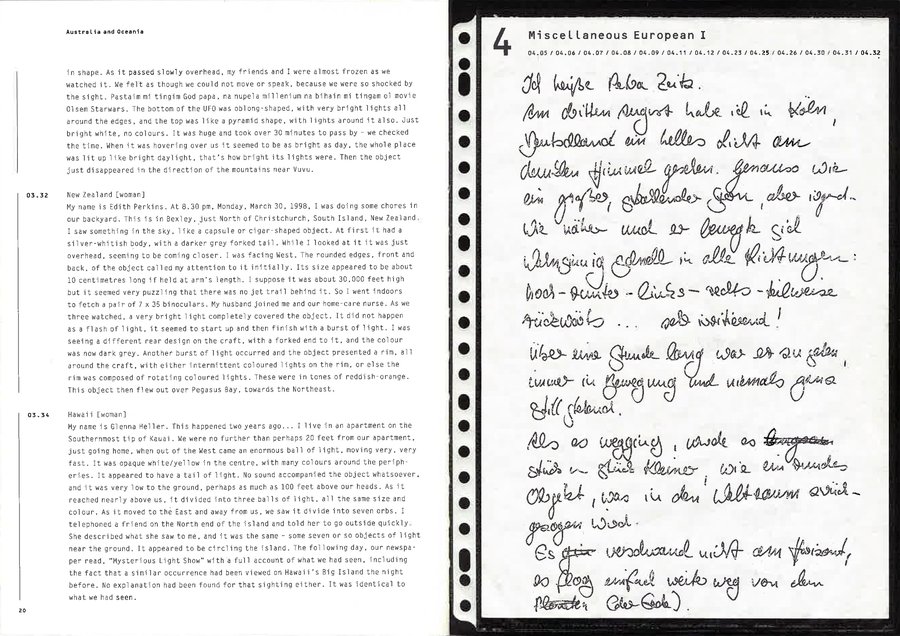 Australia and Oceania
in shape. As it passed slowly overhead, my friends and I were almost frozen as we
watched it. We felt as though we could not move or speak, because we were so shocked by
the sight. Pastaim mi tingim God papa, na nupela millenium na bihain mi tingam ol movie
Olsem Starwars. The bottom of the UFO was oblong-shaped, with very bright lights all
around the edges, and the top was like a pyramid shape, with lights around it also. Just
bright white, no colours. It was huge and took over 30 minutes to pass by – we checked
the time. When it was hovering over us it seemed to be as bright as day, the whole place
was lit up like bright daylight, that's how bright its lights were. Then the object
just disappeared in the direction of the mountains near Vuvu.
03.32 New Zealand [woman]
My name is Edith Perkins. At 8.30 pm, Monday, March 30, 1998, I was doing some chores in
our backyard. This is in Bexley, just North of Christchurch, South Island, New Zealand.
I saw something in the sky, like a capsule or cigar-shaped object. At first it had a
silver-whitish body, with a darker grey forked tail. While I looked at it it was just
overhead, seeming to be coming closer. I was facing West. The rounded edges, front and
back, of the object called my attention to it initially. Its size appeared to be about
10 centimetres long if held at arm's length. I suppose it was about 30,000 feet high
but it seemed very puzzling that there was no jet trail behind it. So I went indoors
to fetch a pair of 7 x 35 binoculars. My husband joined me and our home-care nurse. As we
three watched, a very bright light completely covered the object. It did not happen
as a flash of light, it seemed to start up and then finish with a burst of light. I was
seeing a different rear design on the craft, with a forked end to it, and the colour
was now dark grey. Another burst of light occurred and the object presented a rim, all
around the craft, with either intermittent coloured lights on the rim, or else the
rim was composed of rotating coloured lights. These were in tones of reddish-orange.
This object then flew out over Pegasus Bay, towards the Northeast.
03.34 Hawaii [woman]
My name is Glenna Heller. This happened two years ago... I live in an apartment on the
Southernmost tip of Kauai. We were no further than perhaps 20 feet from our apartment,
just going home, when out of the West came an enormous ball of light, moving very, very
fast. It was opaque white/yellow in the centre, with many colours around the periph-
eries. It appeared to have a tail of light. No sound accompanied the object whatsoever,
and it was very low to the ground, perhaps as much as 100 feet above our heads. As it
reached nearly above us, it divided into three balls of light, all the same size and
colour. As it moved to the East and away from us, we saw it divide into seven orbs. I
telephoned a friend on the North end of the island and told her to go outside quickly.
She described what she saw to me, and it was the same – some seven or so objects of light
near the ground. It appeared to be circling the island. The following day, our newspa-
per read, "Mysterious Light Show" with a full account of what we had seen, including
the fact that a similar occurrence had been viewed on Hawaii's Big Island the night
before. No explanation had been found for that sighting either. It was identical to
what we had seen.
20
4 Miscellaneous European I
04.05 / 04.06 / 04.07 / 04.08 / 04.09 / 04.11 / 04.12 / 04.23 / 04.25 / 04.26 / 04.30 / 04.31 / 04.32
Ich heiße Petra Zeitz.
Am dritten August habe ich in Köln,
Deutschland ein helles Licht am
dunklen Himmel gesehen. Genauso wie
ein großer, strahlender Stern, aber irgend-
wie näher und er bewegte sich
wahnsinnig schnell in alle Richtungen:
hoch - runter - links - rechts - teilweise
rückwärts ... sehr irritierend!
Über eine Stunde lang war er zu sehen,
immer in Bewegung und niemals ganz
stillstehend.
Als es wegging, wurde es
Stück für Stück kleiner, wie ein rundes
Objekt, was in den Weltraum zurück-
gezogen wird.
Es verschwand nicht am Horizont,
es flog einfach weiter weg von dem
Planeten (der Erde).